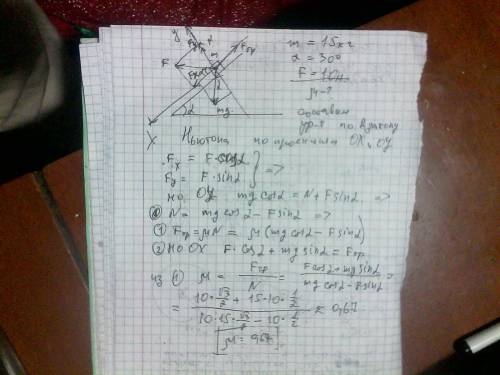 y
α
F
Fтр
m
mg
α
X
m = 15кг
α = 30°
F = 10н
μ-?
составим
ур-я по II закону
Ньютона по проекциям OX, OY
Fx = F·cosα
Fy = F·sinα } =>
на OY mg cosα = N + F sinα =>
N = mg cosα - F sinα =>
① Fтр = μN = μ(mg cosα - F sinα)
② на OX F·cosα + mg sinα = Fтр
из ① μ = Fтр / N = (F cosα + mg sinα) / (mg cosα - F sinα) =
= (10·√3/2 + 15·10·1/2) / (10·15·√3/2 - 10·1/2) ≈ 0,67
μ = 0,67